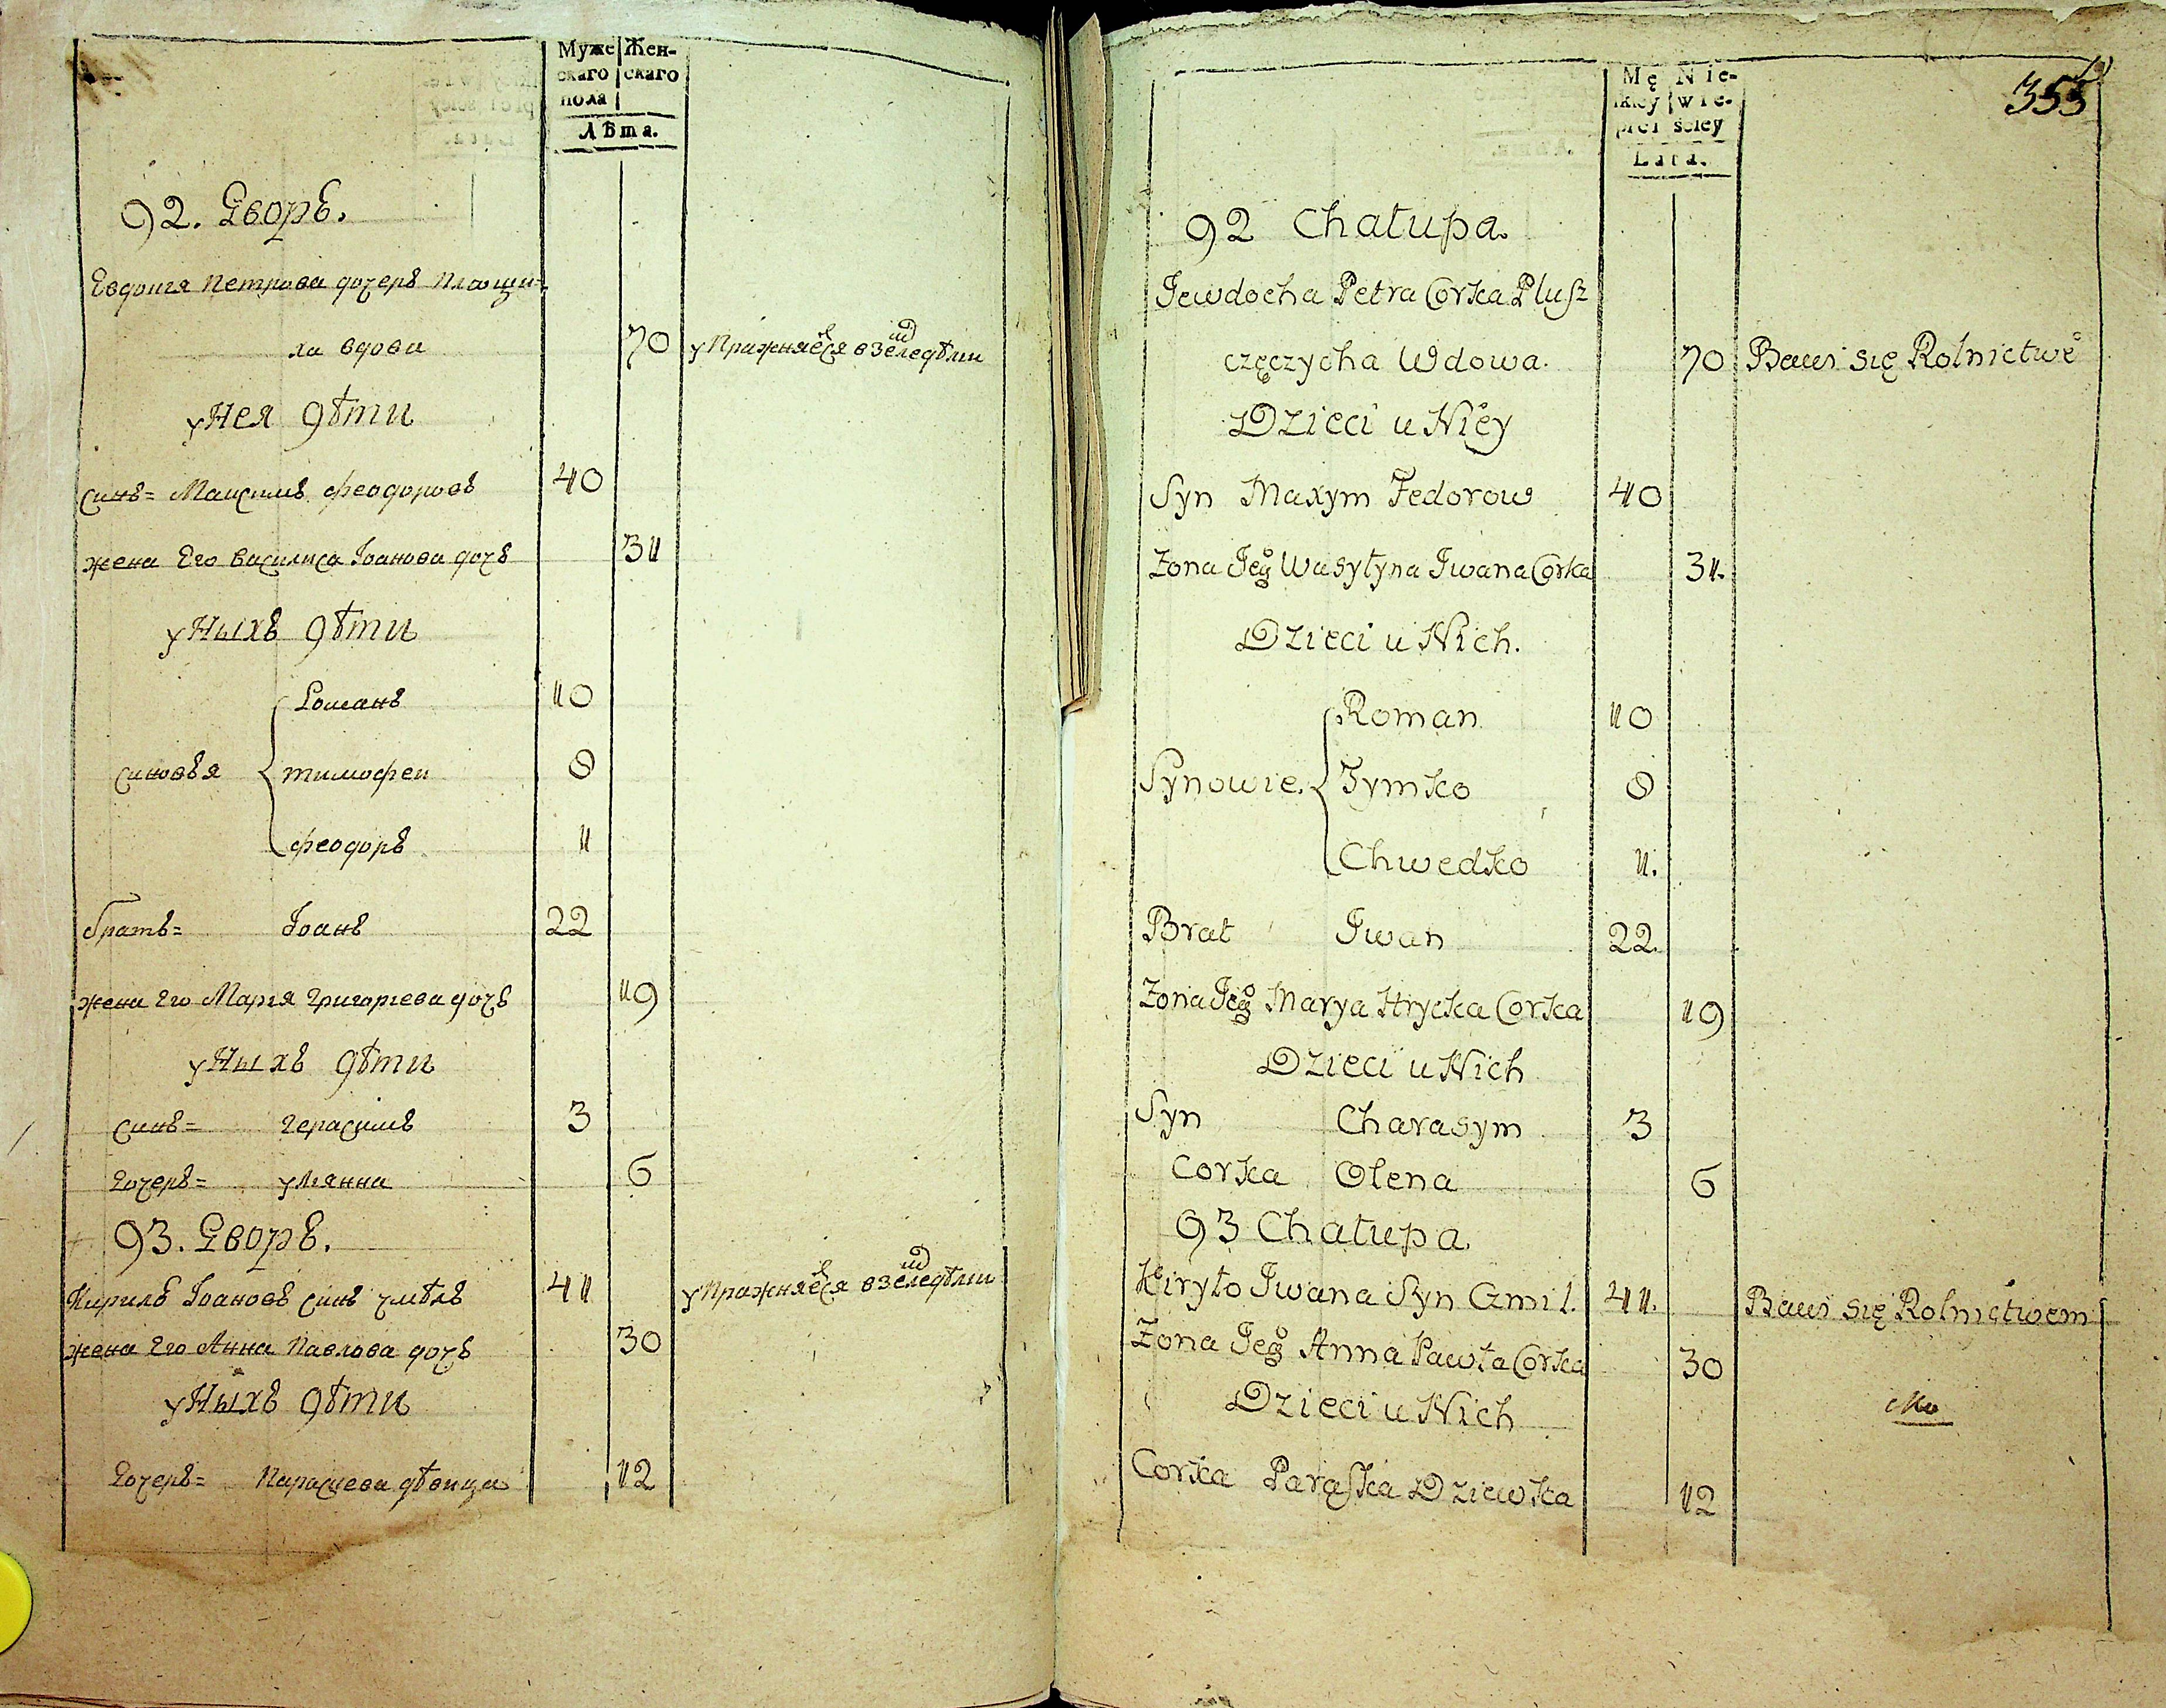 Муже Жен-
скаго скаго
пола
Лѣта.
92. Дворъ.
Евдокія Петрова дочерь Площи-
ха вдова 70 упражняется в земледѣлии
у Нея дѣти
синъ = Маѯимъ Феодоровъ 40
жена Его Василиса Іоанова дочь 31
у Ныхъ дѣти
Романъ 10
синовья Тимофеи 8
Феодоръ 1
братъ = Іоанъ 22
жена Его Марія Григорієва дочь 19
у Ныхъ дѣти
синъ = Герасимъ 3
Дочерь = Улянна 6
93. Дворъ.
Кирилъ Іоановъ синъ Гмѣль 41 упражняется в земледѣлии
жена Его Анна Павлова дочь 30
у Ныхъ дѣти
Дочерь = Параскева дѣвица 12
Mę Nie-
skiey wie-
płci sciey
Lata.
353
92 Chałupa.
Jewdocha Petra Corka Plusz
częczycha Wdowa. 70 Bawi się Rolnictwē
Dzieci u Niey
Syn Maxym Fedorow 40
Zona Jegº Wasyłyna Jwana Corka 31.
Dzieci u Nich.
Roman 10
Synowie. Tymko 8
Chwedko 1.
Brat Jwan 22.
Zona Jegº Marya Hrycka Corka 19
Dzieci u Nich
Syn Charasym 3
Corka Olena 6
93 Chałupa.
Kiryło Jwana Syn Gmil. 41. Bawi się Rolnictwem
Zona Jegº Anna Pawła Corka 30
Dzieci u Nich
Corka Paraska Dziewka 12